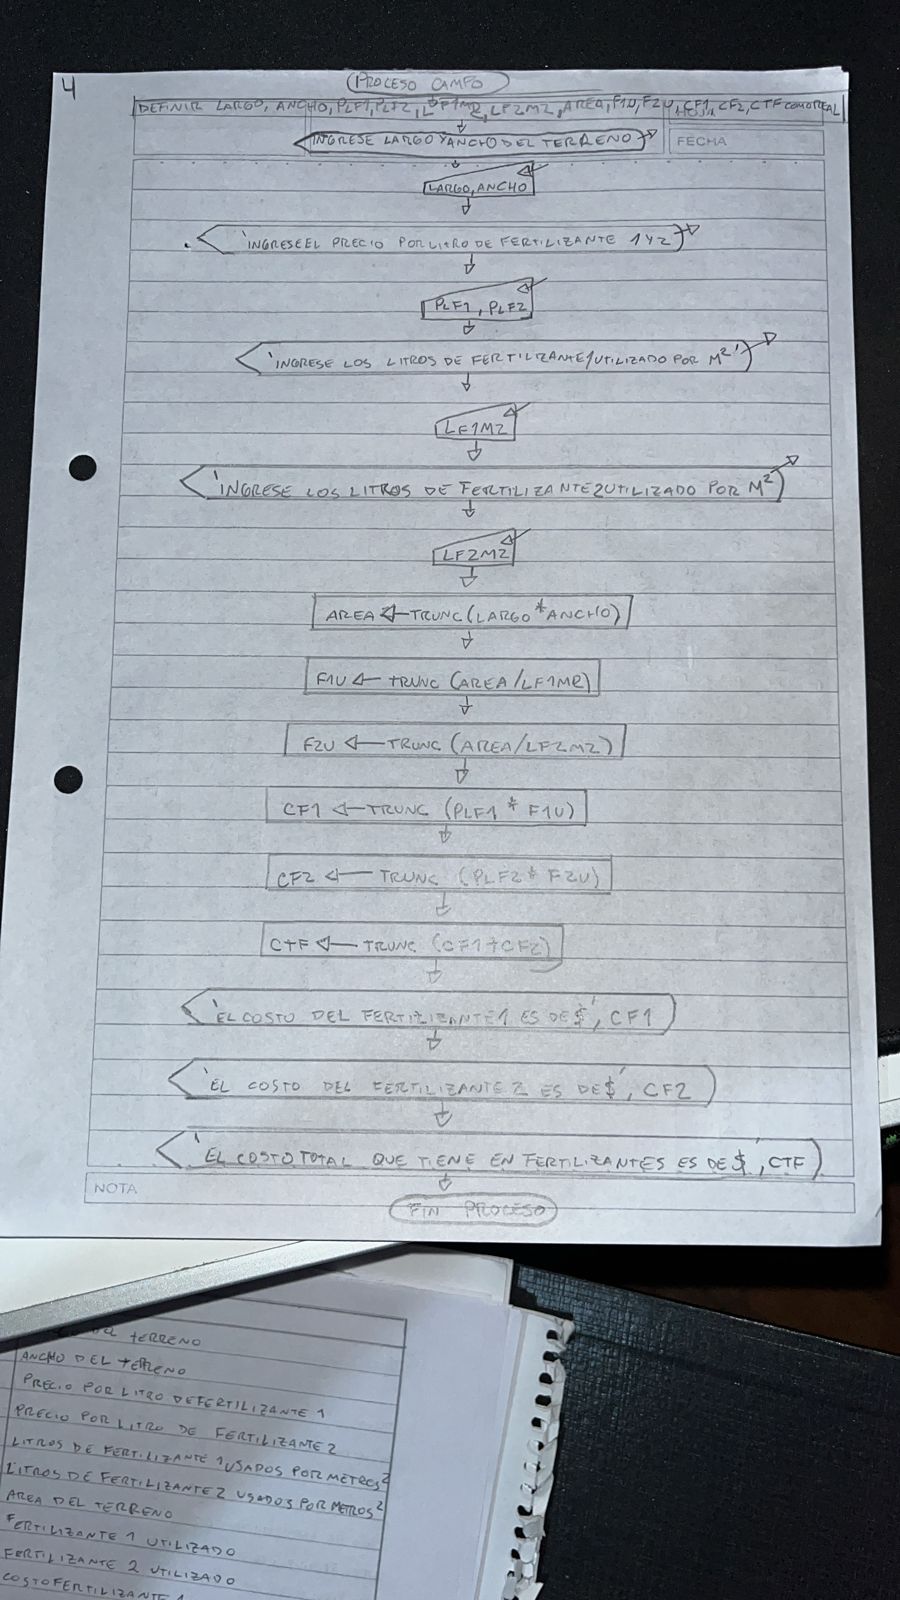 4
PROCESO CAMPO
DEFINIR LARGO, ANCHO, PLF1, PLF2, LF1M2, LF2M2, AREA, F1U, F2U, CF1, CF2, CTF COMO REAL
HOJA
'INGRESE LARGO Y ANCHO DEL TERRENO'
FECHA
LARGO, ANCHO
'INGRESE EL PRECIO POR LITRO DE FERTILIZANTE 1 Y 2'
PLF1, PLF2
'INGRESE LOS LITROS DE FERTILIZANTE 1 UTILIZADO POR M²'
LF1M2
'INGRESE LOS LITROS DE FERTILIZANTE 2 UTILIZADO POR M²
LF2M2
AREA ← TRUNC (LARGO * ANCHO)
F1U ← TRUNC (AREA/LF1M2)
F2U ← TRUNC (AREA/LF2M2)
CF1 ← TRUNC (PLF1 * F1U)
CF2 ← TRUNC (PLF2 * F2U)
CTF ← TRUNC (CF1+CF2)
'EL COSTO DEL FERTILIZANTE 1 ES DE $', CF1
'EL COSTO DEL FERTILIZANTE 2 ES DE $', CF2
'EL COSTO TOTAL QUE TIENE EN FERTILIZANTES ES DE $', CTF
NOTA
FIN PROCESO
TERRENO
ANCHO DEL TERRENO
PRECIO POR LITRO DE FERTILIZANTE 1
PRECIO POR LITRO DE FERTILIZANTE 2
LITROS DE FERTILIZANTE 1 USADOS POR METROS²
LITROS DE FERTILIZANTE 2 USADOS POR METROS²
AREA DEL TERRENO
FERTILIZANTE 1 UTILIZADO
FERTILIZANTE 2 UTILIZADO
COSTO FERTILIZANTE